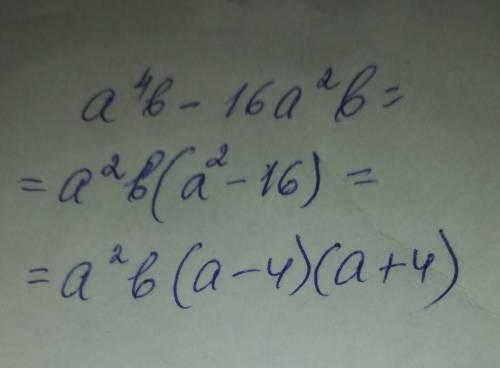 a⁴b - 16a²b =
= a²b(a² - 16) =
= a²b(a - 4)(a + 4)